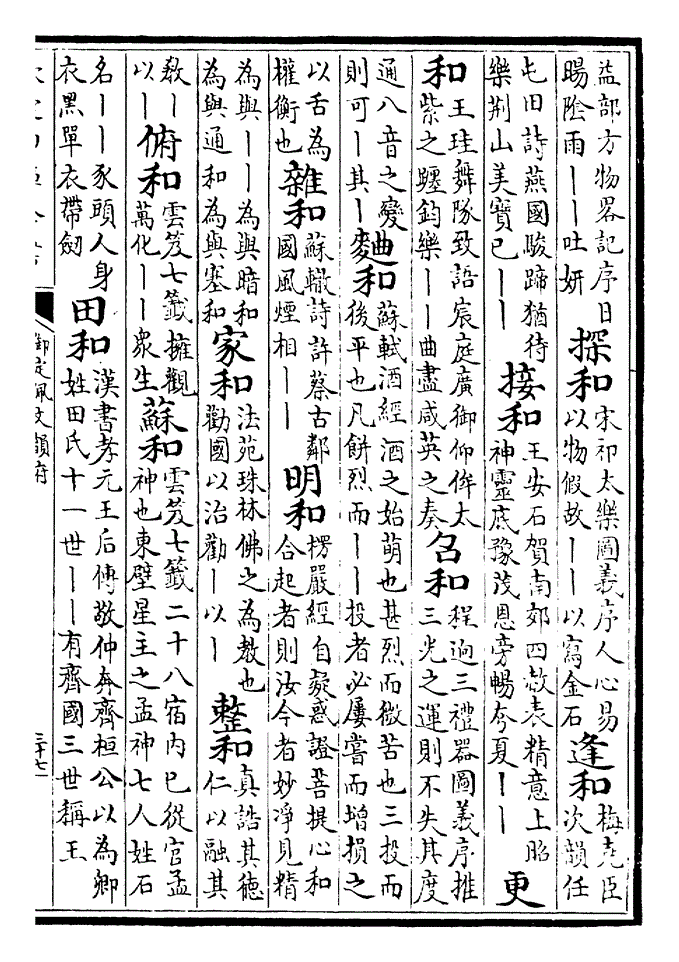 益部方物畧記序日暘陰雨丨丨吐妍探和宋祁太樂圖義序人心易以物假故丨丨以寫金石逢和梅堯臣次韻任
屯田詩燕國駿蹄猶待樂荆山美寶已丨丨接和王安石賀南郊四赦表精意上昭神靈底豫茂恩旁暢夸夏丨丨更
和王珪舞隊致語宸庭廣御仰侔太紫之躔鈞樂丨丨曲盡咸英之奏召和程迥三禮器圖義序推三光之運則不失其度
通八音之變則可丨其丨麴和蘇軾酒經酒之始萌也甚烈而微苦也三投而後平也凡餅烈而丨丨投者必屢嘗而增損之
以舌為權衡也雜和蘇轍詩許蔡古鄰國風煙相丨丨明和楞嚴經自疑惑證菩提心和合起者則汝今者妙淨見精
為與丨丨為與暗和為與通和為與塞和家和法苑珠林佛之為教也勸國以治勸丨以丨整和真誥其德仁以融其
教丨以丨俯和雲笈七籤擁觀萬化丨丨衆生蘇和雲笈七籤二十八宿内已從官孟神也東壁星主之孟神七人姓石
名丨丨豕頭人身衣黑單衣帶劒田和漢書孝元王后傳敬仲奔齊桓公以為卿姓田氏十一世丨丨有齊國三世稱王
御定佩文韻府